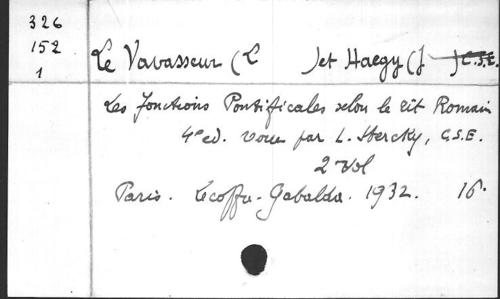 326
152
1
Le Vavasseur (L ) et Haegy (J ) C.S.E.
Les fonctions Pontificales selon le rit Romain
4e ed. vonue par L. Stercky, C.S.E.
2 vol
Paris. Lecoffre-Gabalda. 1932. 16°